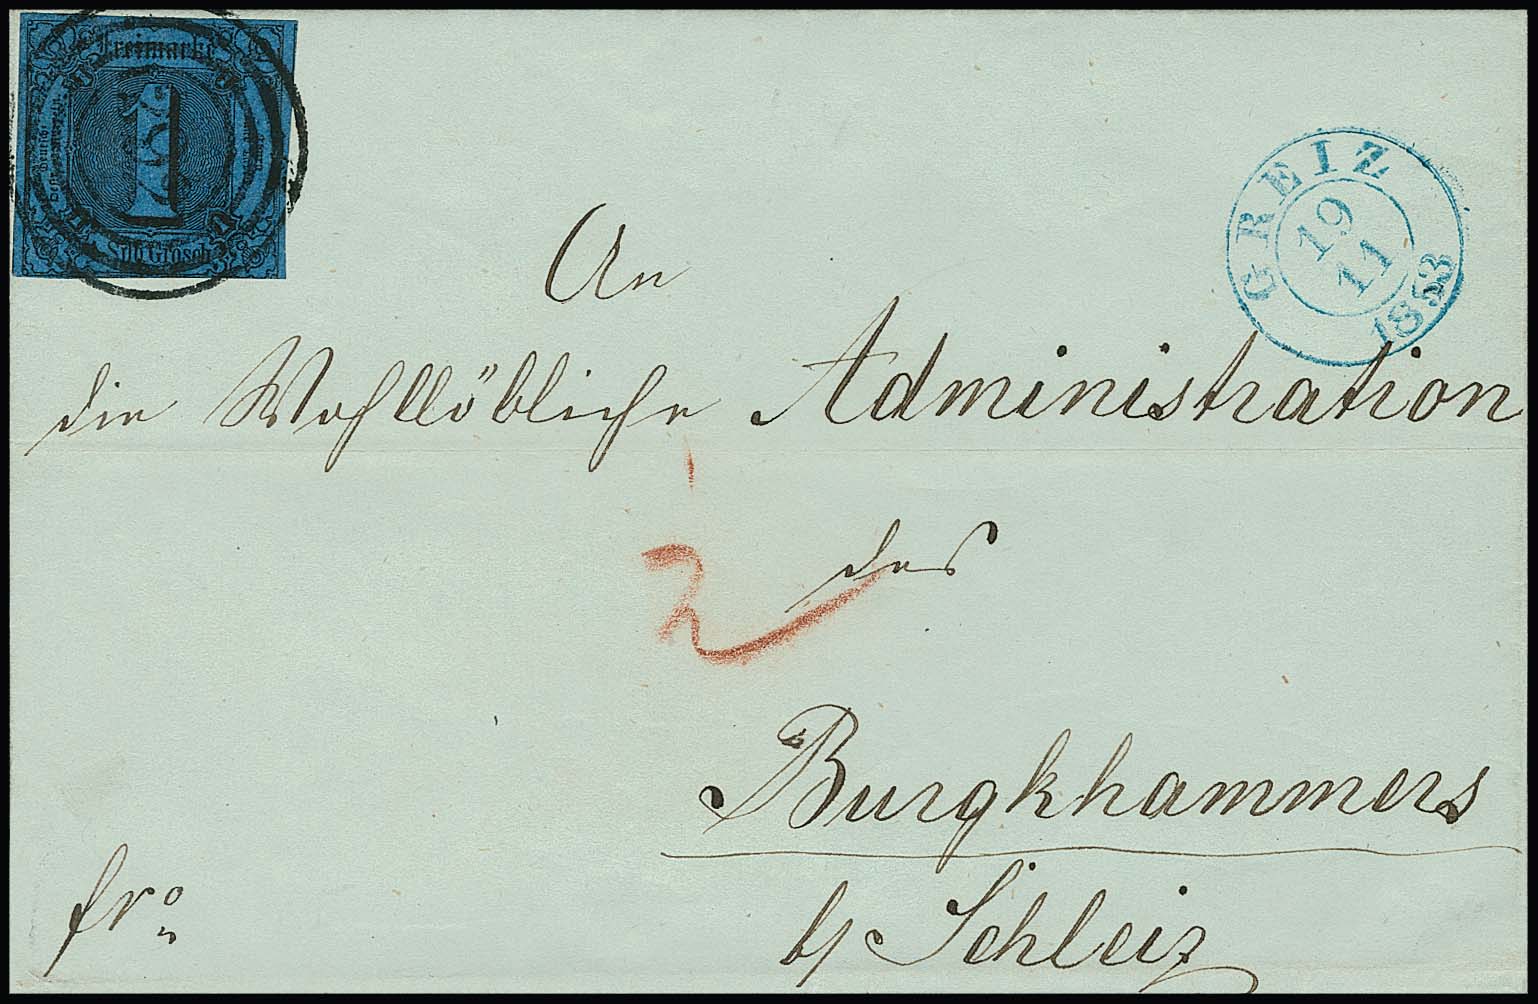 Freimarke
1
Silb. Grosch.
GREIZ
19
11
1853
An
die Wohllöbliche Administration
2
des
Burgkhammers
b/ Schleiz
fro